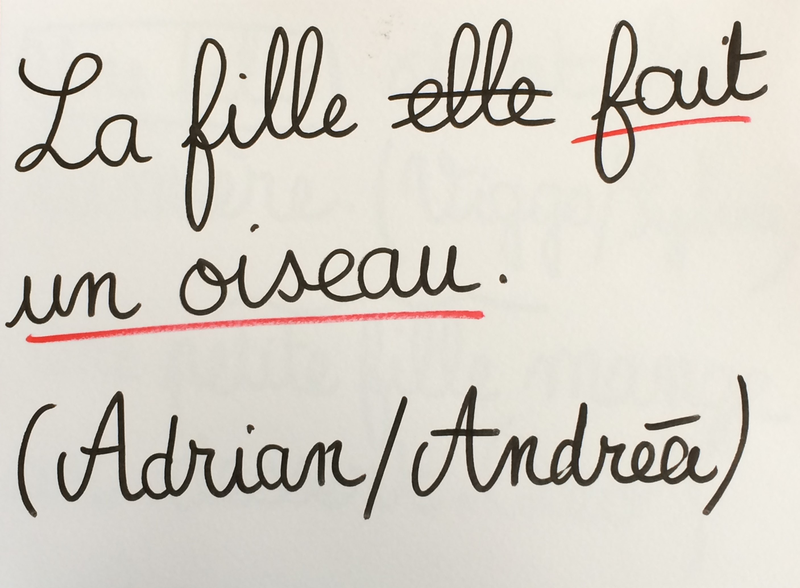 La fille elle fait
un oiseau.
(Adrian/Andréa)